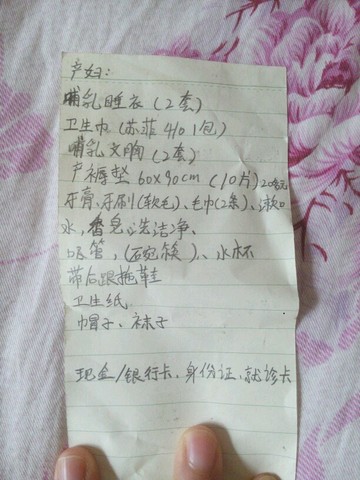 产妇:
哺乳睡衣(2套)
卫生巾(苏菲410 1包)
哺乳文胸(2套)
产褥垫 60x90cm(10片)
牙膏、牙刷(软毛)、毛巾(2条)、漱口
水,香皂、洗洁净、
吸管,(碗筷)、水杯
带后跟拖鞋
卫生纸
帽子、袜子
现金/银行卡、身份证、就诊卡